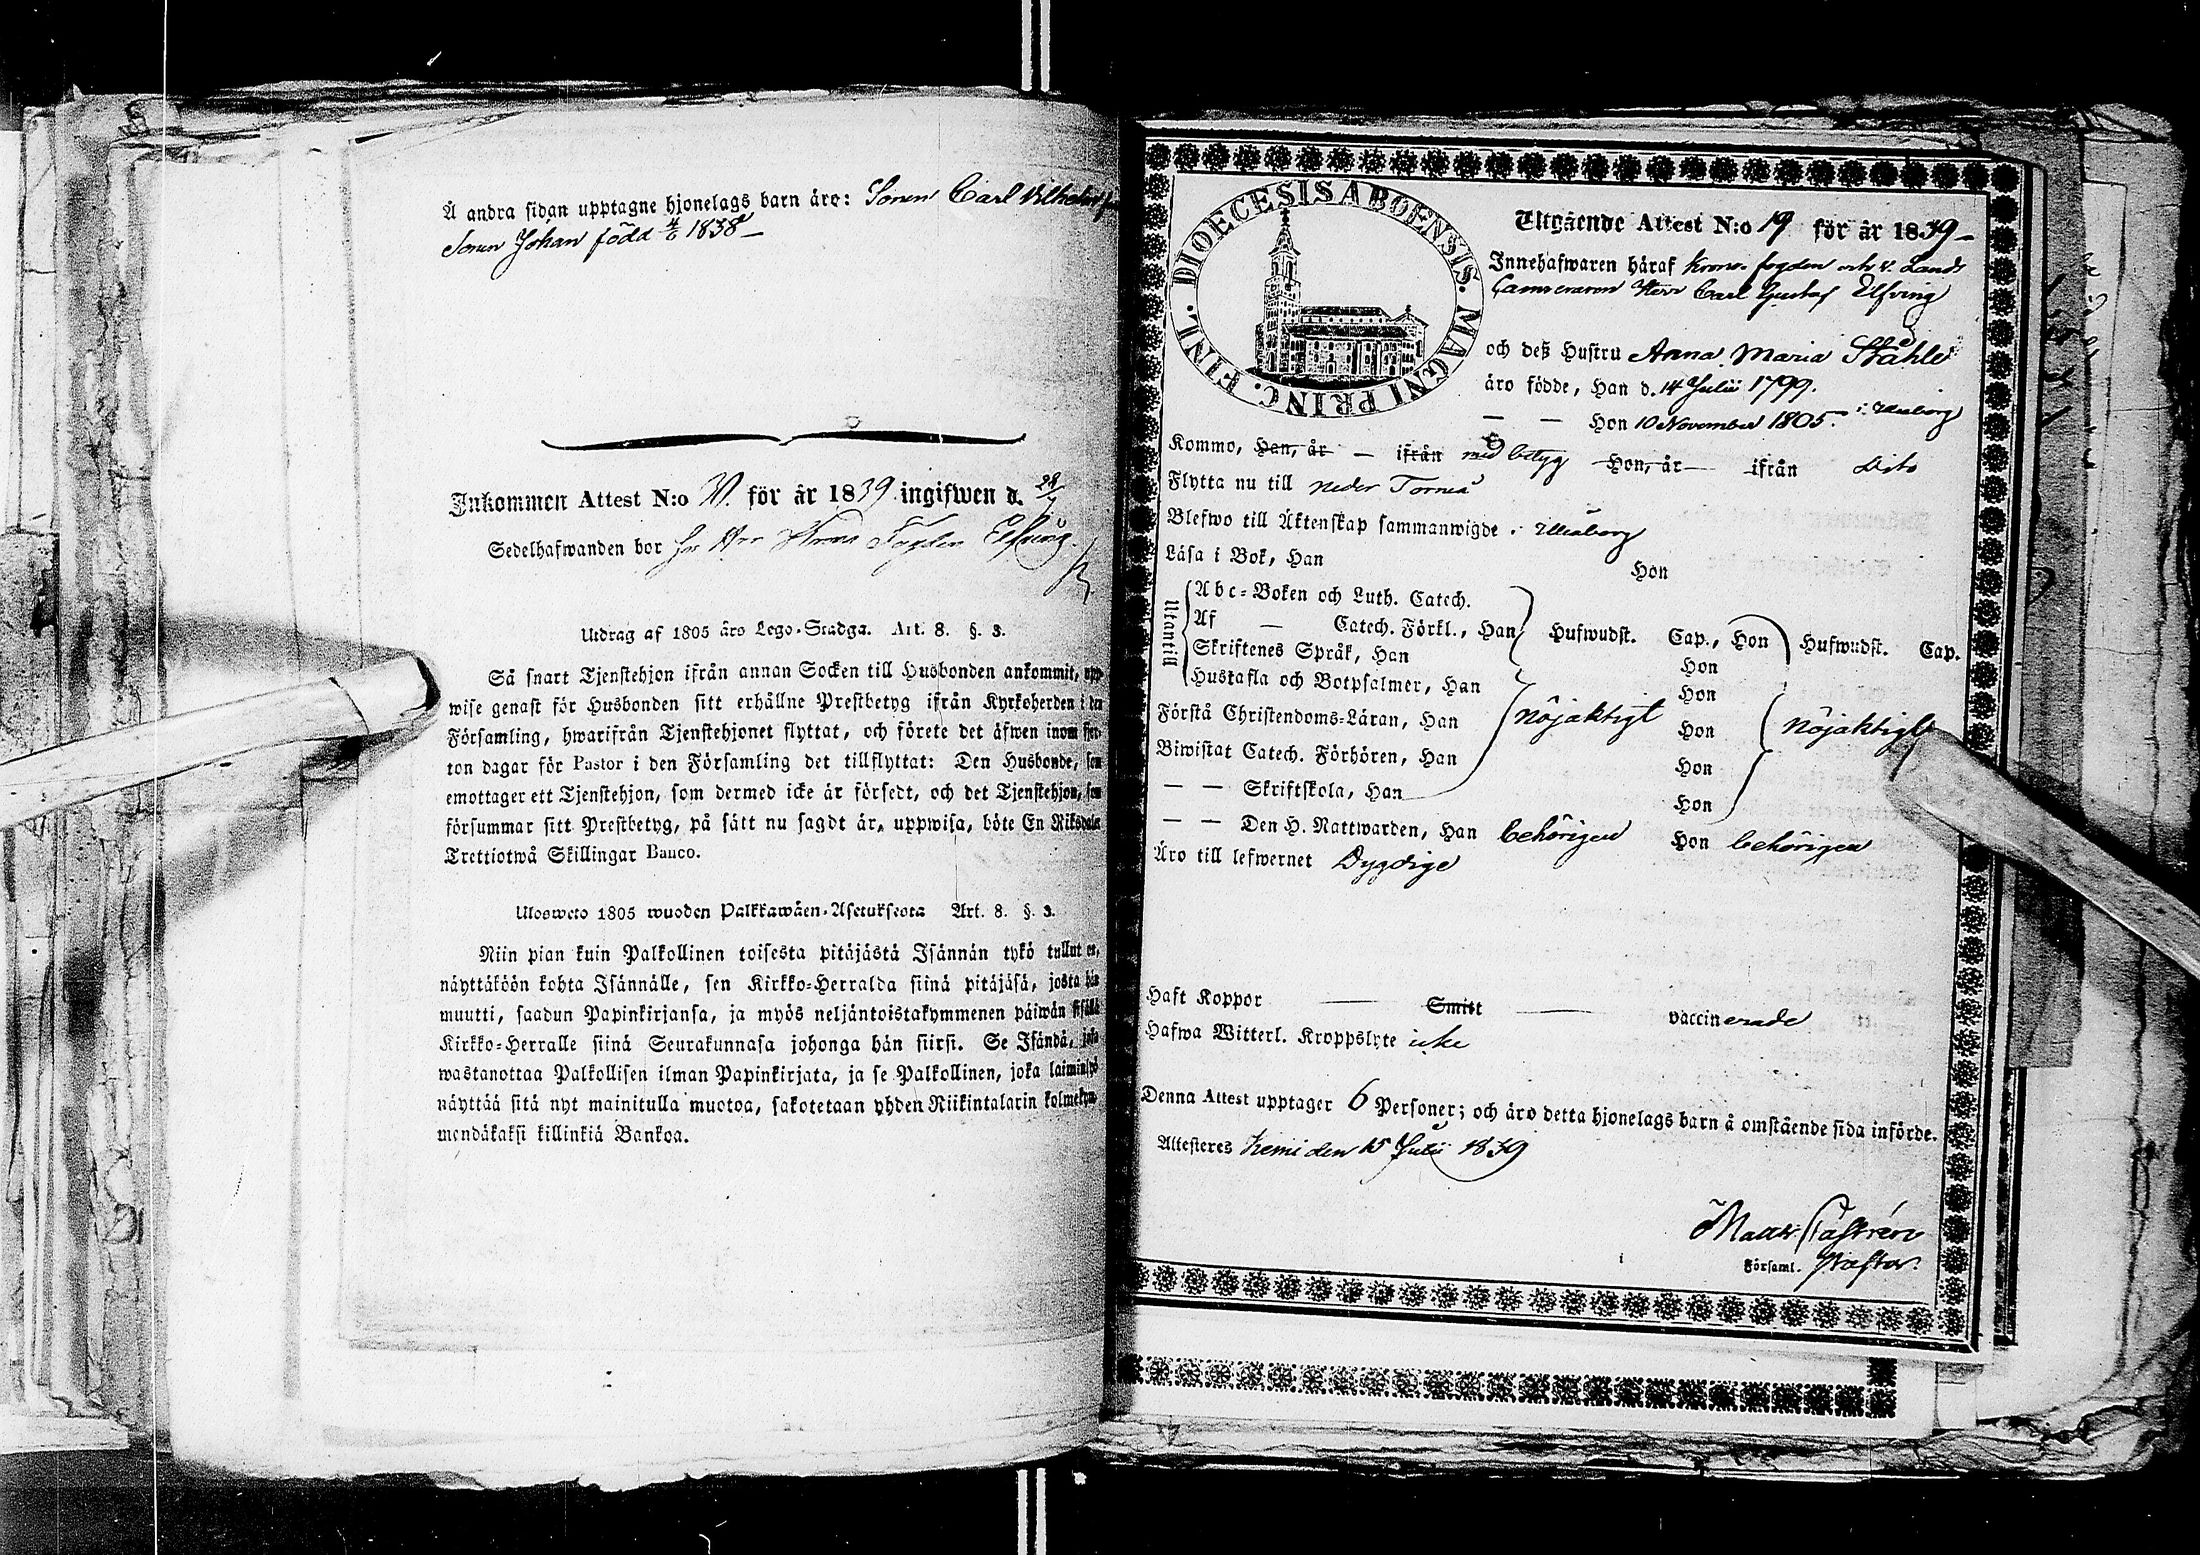 Å andra sidan upptagne hjonelags barn äro: Sonen Carl Vilhelm
Sonen Johan född 4/6 1838
Inkommen Attest N:o V. för år 1839 ingifwen d. 28/7
Sedelhafwanden bor
Utdrag af 1805 års Lego-Stadga. Art. 8. §. 3.
Så snart Tjenstehjon ifrån annan Socken till Husbonden ankommit, upp-
wise genast för Husbonden sitt erhållne Prestbetyg ifrån Kyrkoherden i den
Församling, hwarifrån Tjenstehjonet flyttat, och förete det äfwen inom fjor-
ton dagar för Pastor i den Församling det tillflyttat: Den Husbonde, som
emottager ett Tjenstehjon, som dermed icke är försedt, och det Tjenstehjon, som
försummar sitt Prestbetyg, på sätt nu sagdt är, uppwisa, böte En Riksdaler
Trettiotwå Skillingar Banco.
Ulosweto 1805 wuoden Palkkawäen-Asetuksesta Art. 8. §. 3.
Niin pian kuin Palkollinen toisesta pitäjästä Isännän tykö tullut on,
näyttäköön kohta Isännälle, sen Kirkko-Herralda siinä pitäjäsä, josta hän
muutti, saadun Papinkirjansa, ja myös neljäntoistakymmenen päiwän sisällä
Kirkko-Herralle siinä Seurakunnasa johonga hän siirsi. Se Isändä, joka
wastanottaa Palkollisen ilman Papinkirjata, ja se Palkollinen, joka laiminlyö
näyttää sitä nyt mainitulla muotoa, sakotetaan yhden Riikintalarin kolmekym-
mendäkaksi killinkiä Bankoa.
DIOECESIS ABOENSIS. MAGNI PRINC. FINL.
Utgående Attest N:o 19 för år 1839
Innehafwaren häraf Krono-fogden och v. Lands
Cameraren Herr Carl Gustaf Elfving
och deß Hustru Anna Maria Ståhle
äro födde, Han d. 14 Julii 1799.
— — Hon 10 November 1805. i Uleåborg
Kommo, Han, år — ifrån med betyg Hon, år — ifrån dito
Flytta nu till Neder Torneå
Blefwo till Äktenskap sammanwigde i Uleåborg
Läsa i Bok, Han Hon
Utantill
Abc-Boken och Luth. Catech.
Af — Catech. Förkl., Han Hufwudst. Cap., Hon Hufwudst. Cap.
Skriftenes Språk, Han Hon
Hustafla och Botpsalmer, Han Hon
Förstå Christendoms-Läran, Han nöjaktigt Hon nöjaktigt
Biwistat Catech. Förhören, Han Hon
— — Skriftskola, Han Hon
— — Den H. Nattwarden, Han behörigen Hon behörigen
Äro till lefwernet Dygdige
Haft Koppor — Smitt — vaccinerade
Hafwa Witterl. Kroppslyte icke
Denna Attest upptager 6 Personer; och äro detta hjonelags barn å omstående sida införde.
Attesteres Kemi den 15 Julii 1839
Matth. Castrén
Församl. Pastor